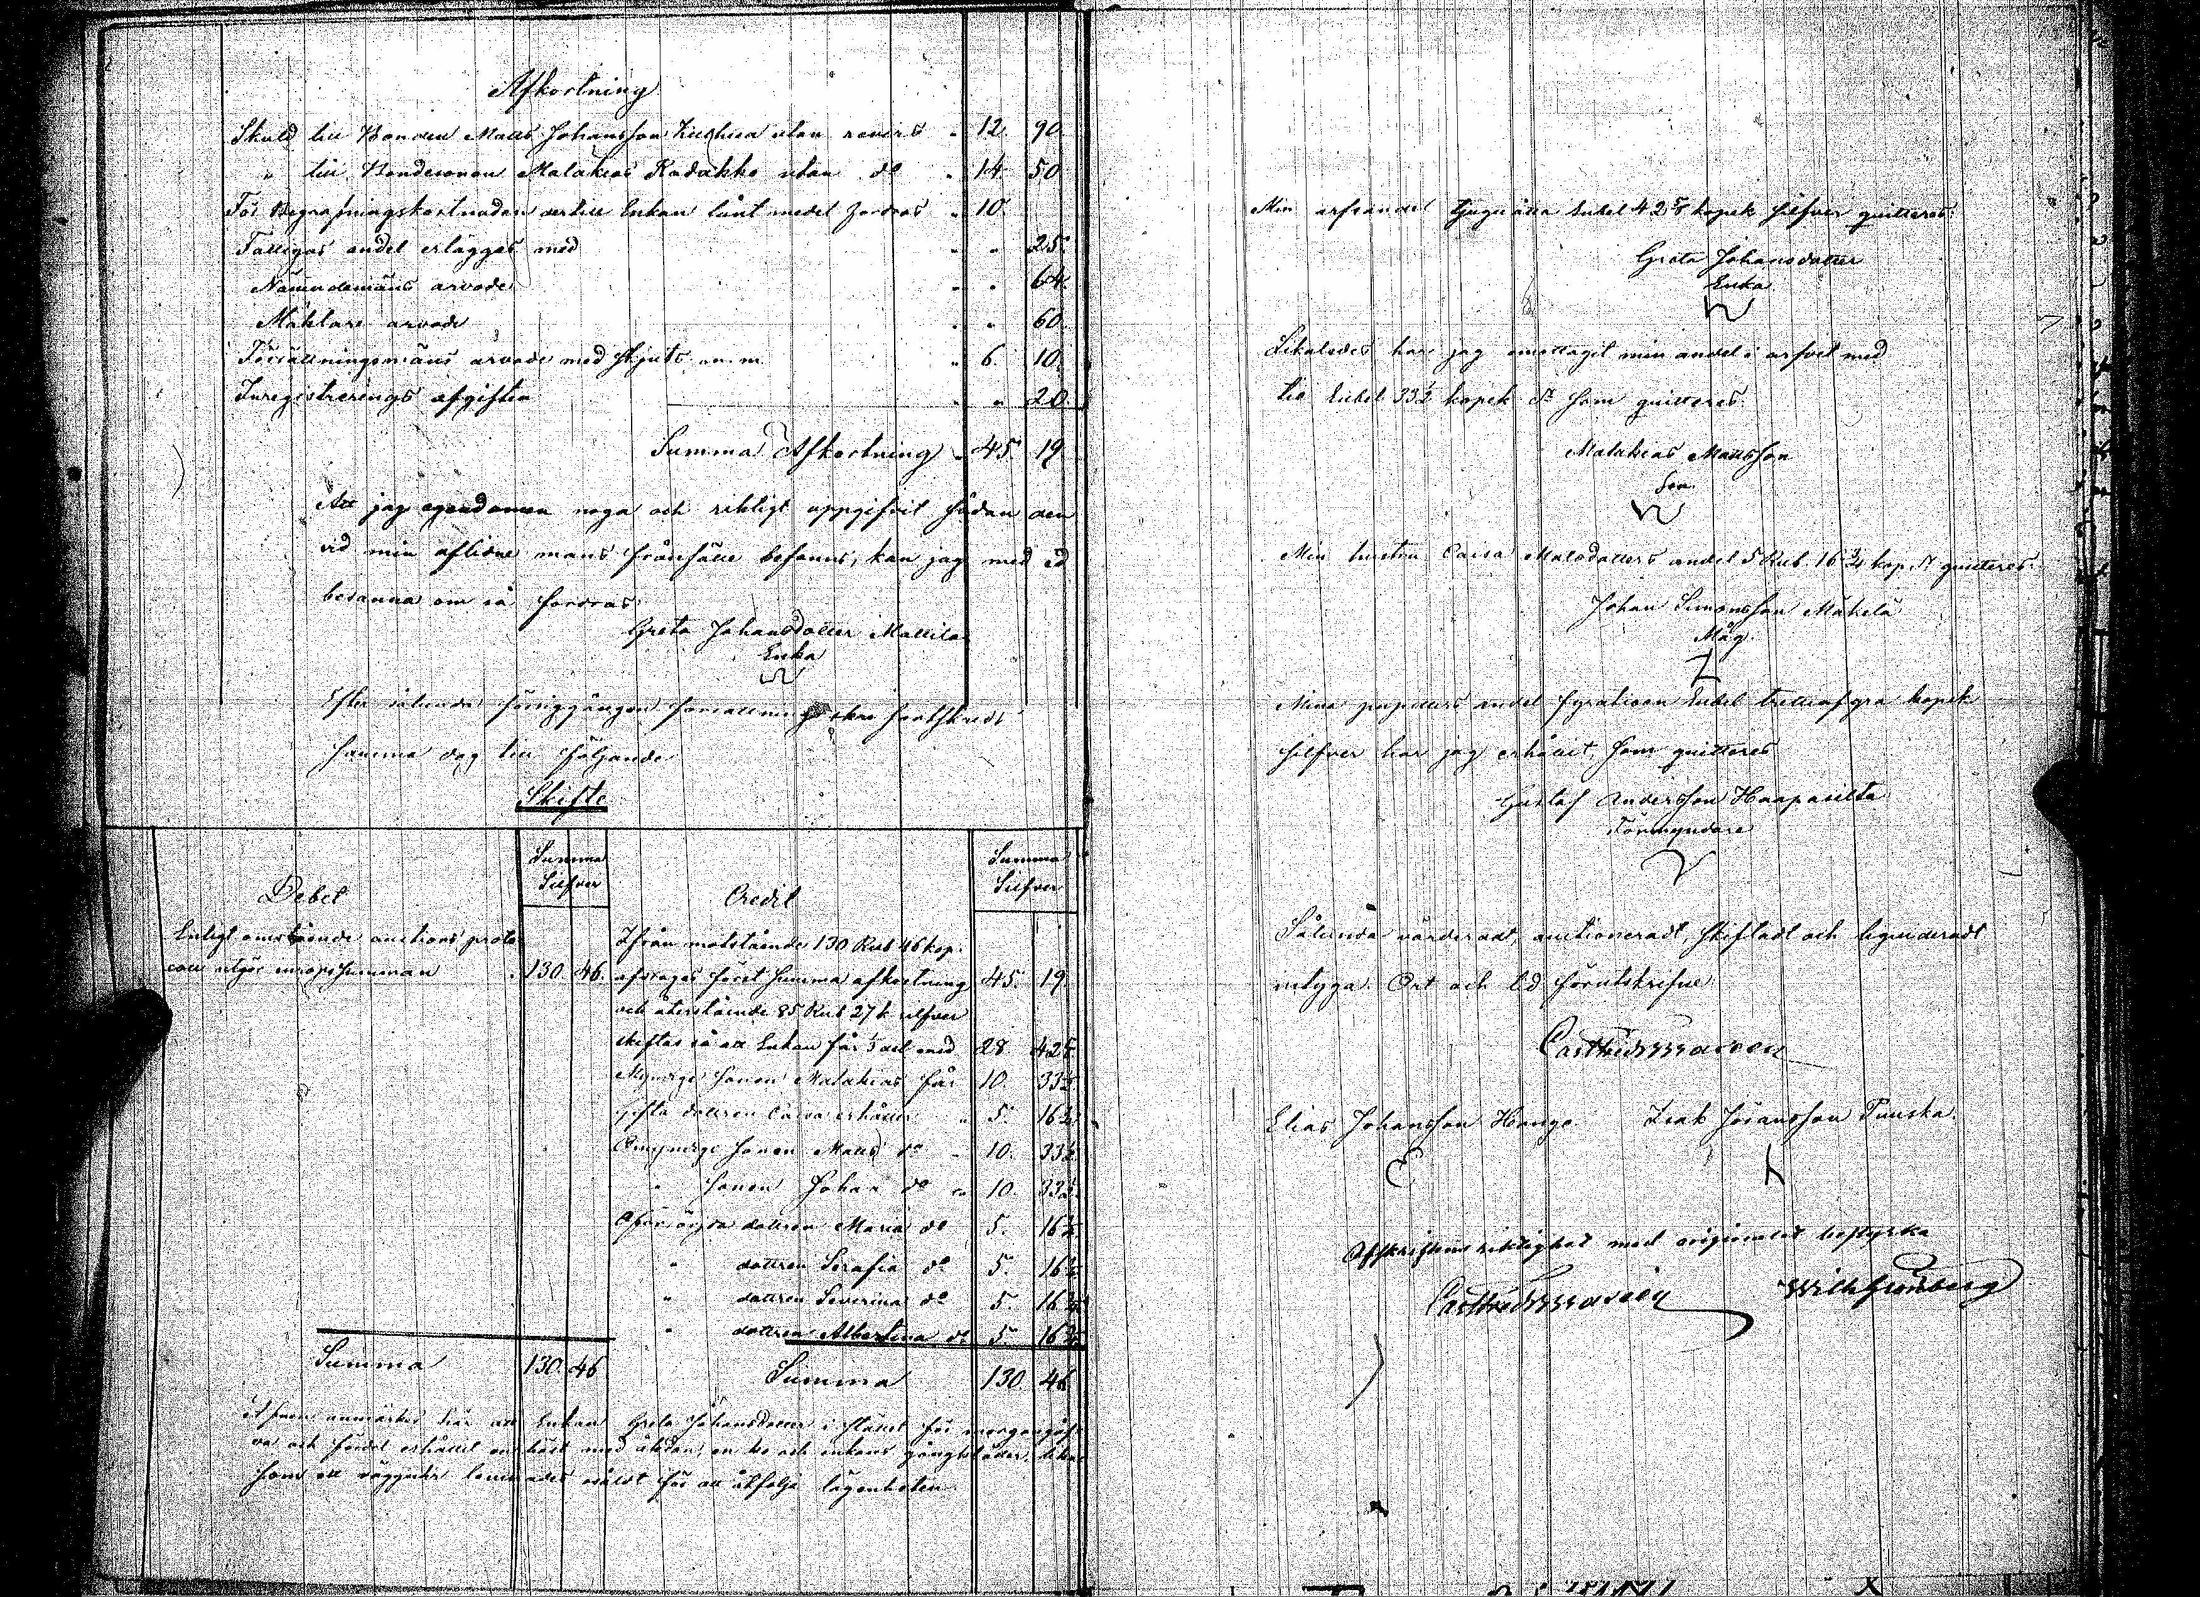 Afkortning
Skuld till Bonden Matts Johansson utan revers " 12. 90.
" till Bondesonen Malakias Kadakko utan do " 14. 50
För Begrafningskostnaden dertill Enkan lånt medel fordras " 10.
Fattigas andel erlägges med " " 25.
Nämndemäns arvode " " 64.
Mäklare arvode " " 60.
Förrättningsmäns arvode med skjuts m.m. " 6. 10.
Inregistrerings afgiften " " 20.
Summa Afkortning " 45. 19
Att jag egendomen noga och riktigt uppgifvit sådan den
vid min aflidne mans frånfälle befanns, kan jag med ed
besanna om så fordras.
Greta Johansdotter Mattila
Enka
Efter sålunda föregången förrättning skre fortskreds
samma dag till följande
Skifte
Debet
Summa Silfver
Credit
Summa Silfver
Enligt omstående auctions proto-
coll utgör inropssumman " 130. 46.
Ifrån motstående 130 Rub 46 kop.
afdrages först summa afkortning 45. 19.
och återstående 85 Rub 27 k silfver
skiftas så att Enkan får 1/3 del med 28. 42 5/8
Myndige sonen Malakias får 10. 33 1/2
gifta dottren Caisa erhåller " 5. 16 3/4
Omyndige sonen Matts do " 10. 33 1/2
" sonen Johan do " 10. 33 1/2
Oförsörjda dottren Maria do 5. 16 3/4
" dottren Serafia do 5. 16 3/4
" dottren Severina do 5. 16 3/4
" dottren Albertina do 5. 16 3/4
Summa 130. 46
Summa 130. 46
Äfven anmärkes här att Enkan Greta Johansdotter i stället för morgongåf-
va och fördel erhållit en häst med åkdon, en ko och enkans gångkläder, lika
som ett väggur lemnades osåldt för att åtfölja lägenheten.
Min arfsandel tjuguåtta Rubel 42 5/8 kopek silfver quitteras.
Greta Johansdotter
Enka
Likaledes har jag emottagit min andel i arfvet med
tio Rubel 33 1/2 kopek Sr som quitteras.
Malakias Mattsson
Son
Min hustru Caisa Matsdotters andel 5 Rub. 16 3/4 kop. Sr quitteras.
Johan Simonsson Mäkelä
Måg.
Mina pupillers andel fyratioen Rubel trettiofyra kopek
silfver har jag erhållit som quitteras
Gustaf Andersson Haapasilta
Förmyndare
Sålunda värderadt, auctioneradt, skiftadt och liquideradt
intyga. Ort och tid förutskrifne.
Elias Johansson Hongo Isak Johansson Puuska.
Afskriftens riktighet med originalet bestyrka